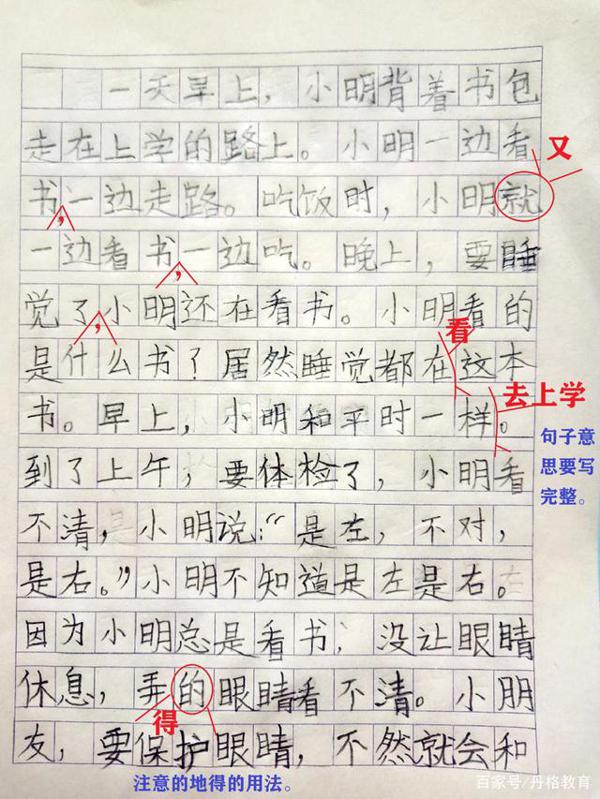 一天早上，小明背着书包
走在上学的路上。小明一边看
又
书一边走路。吃饭时，小明就
，
一边看书一边吃。晚上，要睡
，
觉了小明还在看书。小明看的
，
看
是什么书？居然睡觉都在这本
去上学
书。早上，小明和平时一样。
句子意
思要写
完整。
到了上午，要体检了，小明看
不清，小明说：“是左，不对，
是右。”小明不知道是左是右。
因为小明总是看书，没让眼睛
休息，弄的眼睛看不清。小朋
得
友，要保护眼睛，不然就会和
注意的地得的用法。
百家号/丹格教育